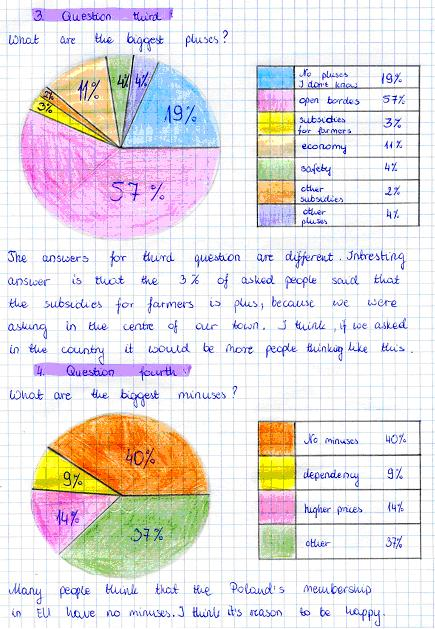 3. Question third
What are the biggest pluses?
11%
4%
4%
19%
2%
3%
57%
No pluses
I don't know 19%
open bordes 57%
subsidies
for farmers 3%
economy 11%
safety 4%
other
subsidies 2%
other
pluses 4%
The answers for third question are different. Intresting
answer is that the 3% of asked people said that
the subsidies for farmers is plus, because we were
asking in the centre of our town. I think, if we asked
in the country it would be more people thinking like this.
4. Question fourth
What are the biggest minuses?
40%
9%
14%
37%
No minuses 40%
dependency 9%
higher prices 14%
other 37%
Many people think that the Poland's membership
in EU have no minuses. I think it's reason to be happy.